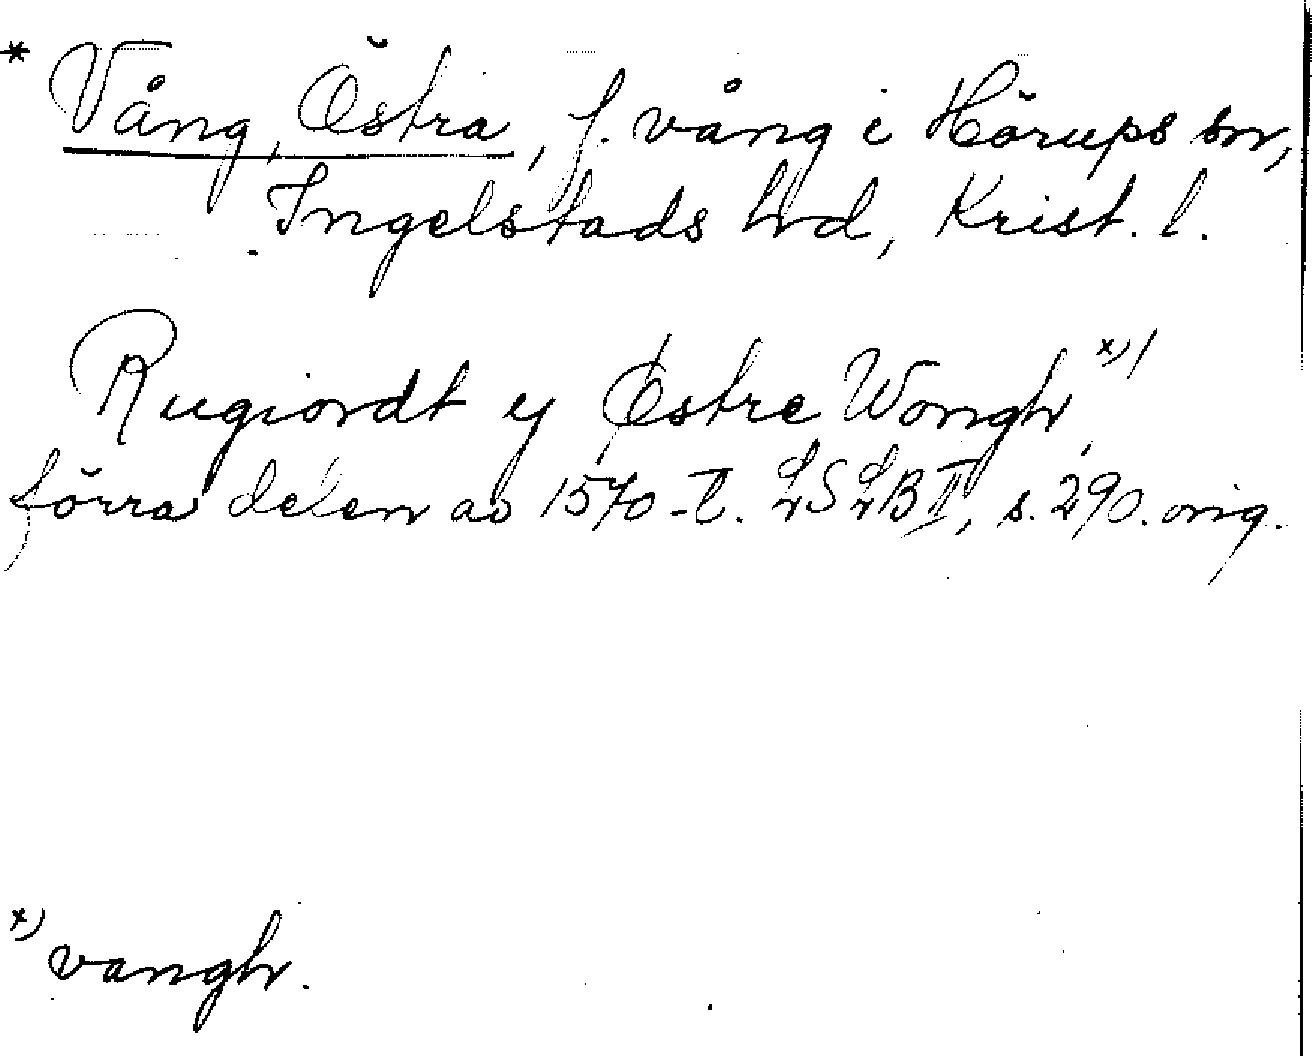 * Vång, Östra, f. vång i Hörups sn,
Ingelstads hd, Krist. l.
Rugiordt y Østre Wongh, x)/
förra delen av 1570-t. LSLB II, s. 290. orig.
x) vangh.